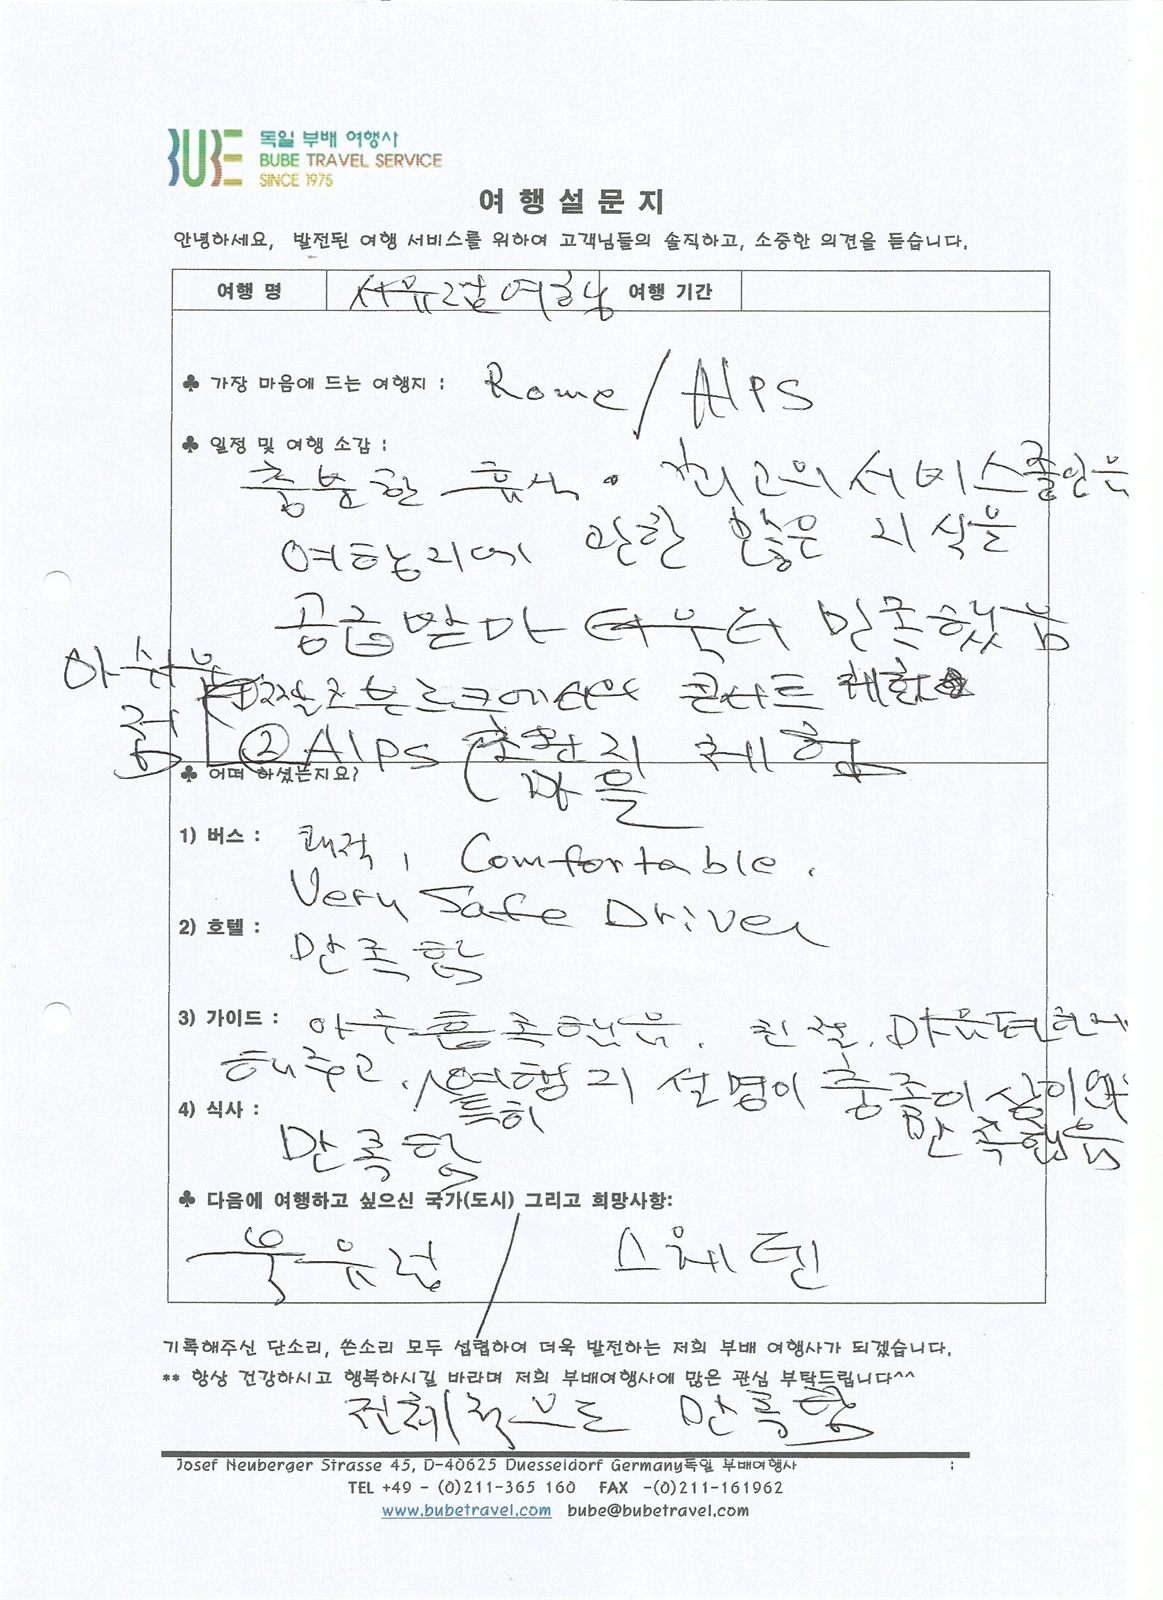 BUBE 독일 부배 여행사
BUBE TRAVEL SERVICE
SINCE 1975
여 행 설 문 지
안녕하세요, 발전된 여행 서비스를 위하여 고객님들의 솔직하고, 소중한 의견을 듣습니다.
여행 명 서유럽여행 여행 기간
♣ 가장 마음에 드는 여행지 : Rome / Alps
♣ 일정 및 여행 소감 :
충분한 휴식. 최고의 서비스
여행지에 관한 많은 지식을
공급받아 더욱더 만족했음
아쉬운 ① 짤츠부르크에서의 콘서트 체험
점 ② Alps 초원지 체험
마을
♣ 어떠 하셨는지요?
1) 버스 : 쾌적, Comfortable.
Very Safe Driver
2) 호텔 :
만족함
3) 가이드 : 아주 흡족했음. 친절. 마음편하게
해주고. 여행지 설명이
특히 만족했음
4) 식사 :
만족함
♣ 다음에 여행하고 싶으신 국가(도시) 그리고 희망사항:
북유럽 / 스웨덴
기록해주신 단소리, 쓴소리 모두 섭렵하여 더욱 발전하는 저희 부배 여행사가 되겠습니다.
** 항상 건강하시고 행복하시길 바라며 저희 부배여행사에 많은 관심 부탁드립니다^^
전체적으로 만족함
Josef Neuberger Strasse 45, D-40625 Duesseldorf Germany독일 부배여행사 :
TEL +49 - (0)211-365 160 FAX -(0)211-161962
www.bubetravel.com bube@bubetravel.com